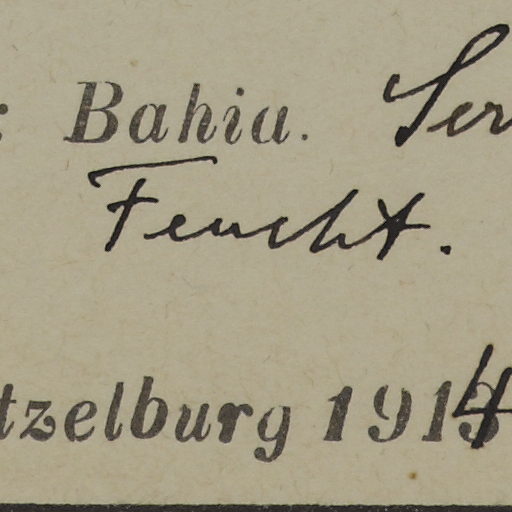 : Bahia. Ser
Feucht.
tzelburg 1914